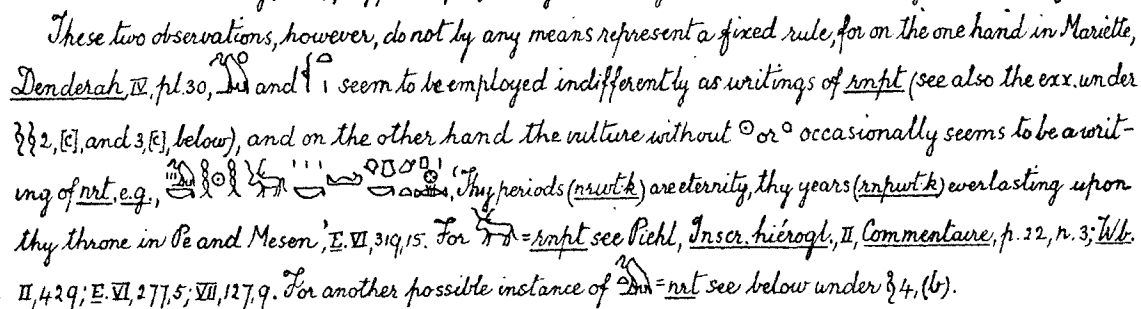 These two observations, however, do not by any means represent a fixed rule, for on the one hand in Mariette,
Denderah, IV, pl. 30, and seem to be employed indifferently as writings of rnpt (see also the exx. under
§§ 2, [c], and 3, [c], below), and on the other hand the vulture without ☉ or ° occasionally seems to be a writ-
ing of nrt, e.g., 'Thy periods (nrwt·k) are eternity, thy years (rnpwt·k) everlasting upon
thy throne in Pe and Mesen,' E. VI, 319, 15. For = rnpt see Piehl, Inscr. hiérogl., II, Commentaire, p. 22, n. 3; Wb.
II, 429; E. VI, 277, 5; VII, 127, 9. For another possible instance of = nrt see below under § 4, (b).